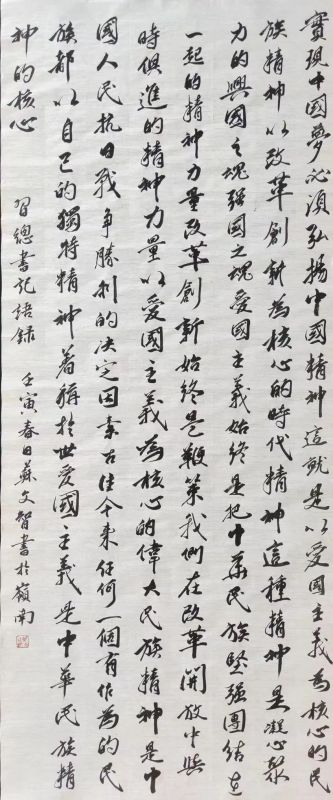 實現中國夢必須弘揚中國精神這就是以愛國主義為核心的民
族精神以改革創新為核心的時代精神這種精神是凝心聚
力的興國之魂强國之魂愛國主義始終是把中華民族堅强團結在
一起的精神力量改革創新始終是鞭策我們在改革開放中與
時俱進的精神力量以愛國主義為核心的偉大民族精神是中
國人民抗日戰争勝利的决定因素古往今來任何一個有作為的民
族都以自己的獨特精神著稱於世愛國主義是中華民族精
神的核心
習總書記語録 壬寅春日蘇文智書於嶺南